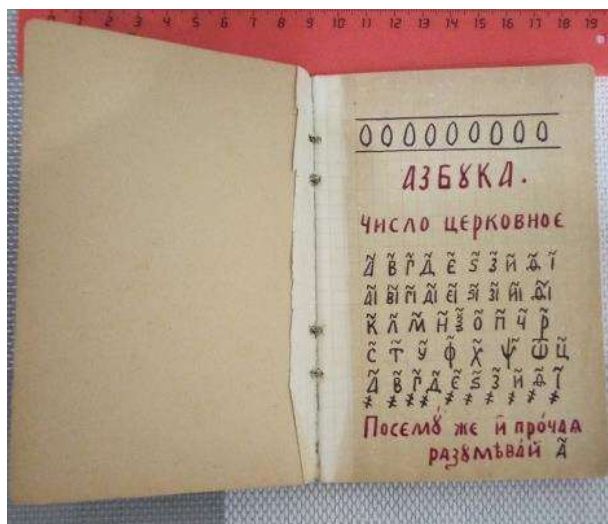 0 1 2 3 4 5 6 7 8 9 10 11 12 13 14 15 16 17 18 19
АЗБꙋКА.
ЧИСЛО ЦЕРКОВНОЕ
А҃ В҃ Г҃ Д҃ Є҃ Ѕ҃ З҃ И҃ Ѳ҃ І҃
А҃І В҃І Г҃І Д҃І Є҃І Ѕ҃І З҃І И҃І Ѳ҃І
К҃ Л҃ М҃ Н҃ Ѯ҃ О҃ П҃ Ч҃ Р҃
С҃ Т҃ У҃ Ф҃ Х҃ Ѱ҃ Ѿ҃ Ц҃
҂А҃ ҂В҃ ҂Г҃ ҂Д҃ ҂Є҃ ҂Ѕ҃ ҂З҃ ҂И҃ ҂Ѳ҃ ҂І҃
Посемꙋ́ же и҆ про́чаѧ
разꙋмѣва́й А҃